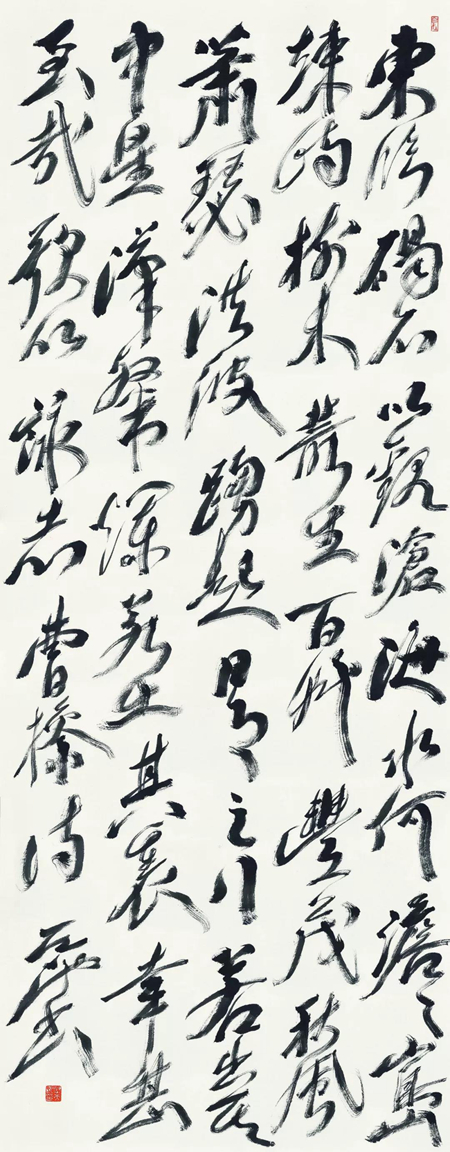 東臨碣石以觀滄海水何澹々山島
竦峙樹木叢生百草豐茂秋風
蕭瑟洪波踴起日月之行若出其
中星漢粲爛若出其裏幸甚
至哉歌以詠志曹操詩